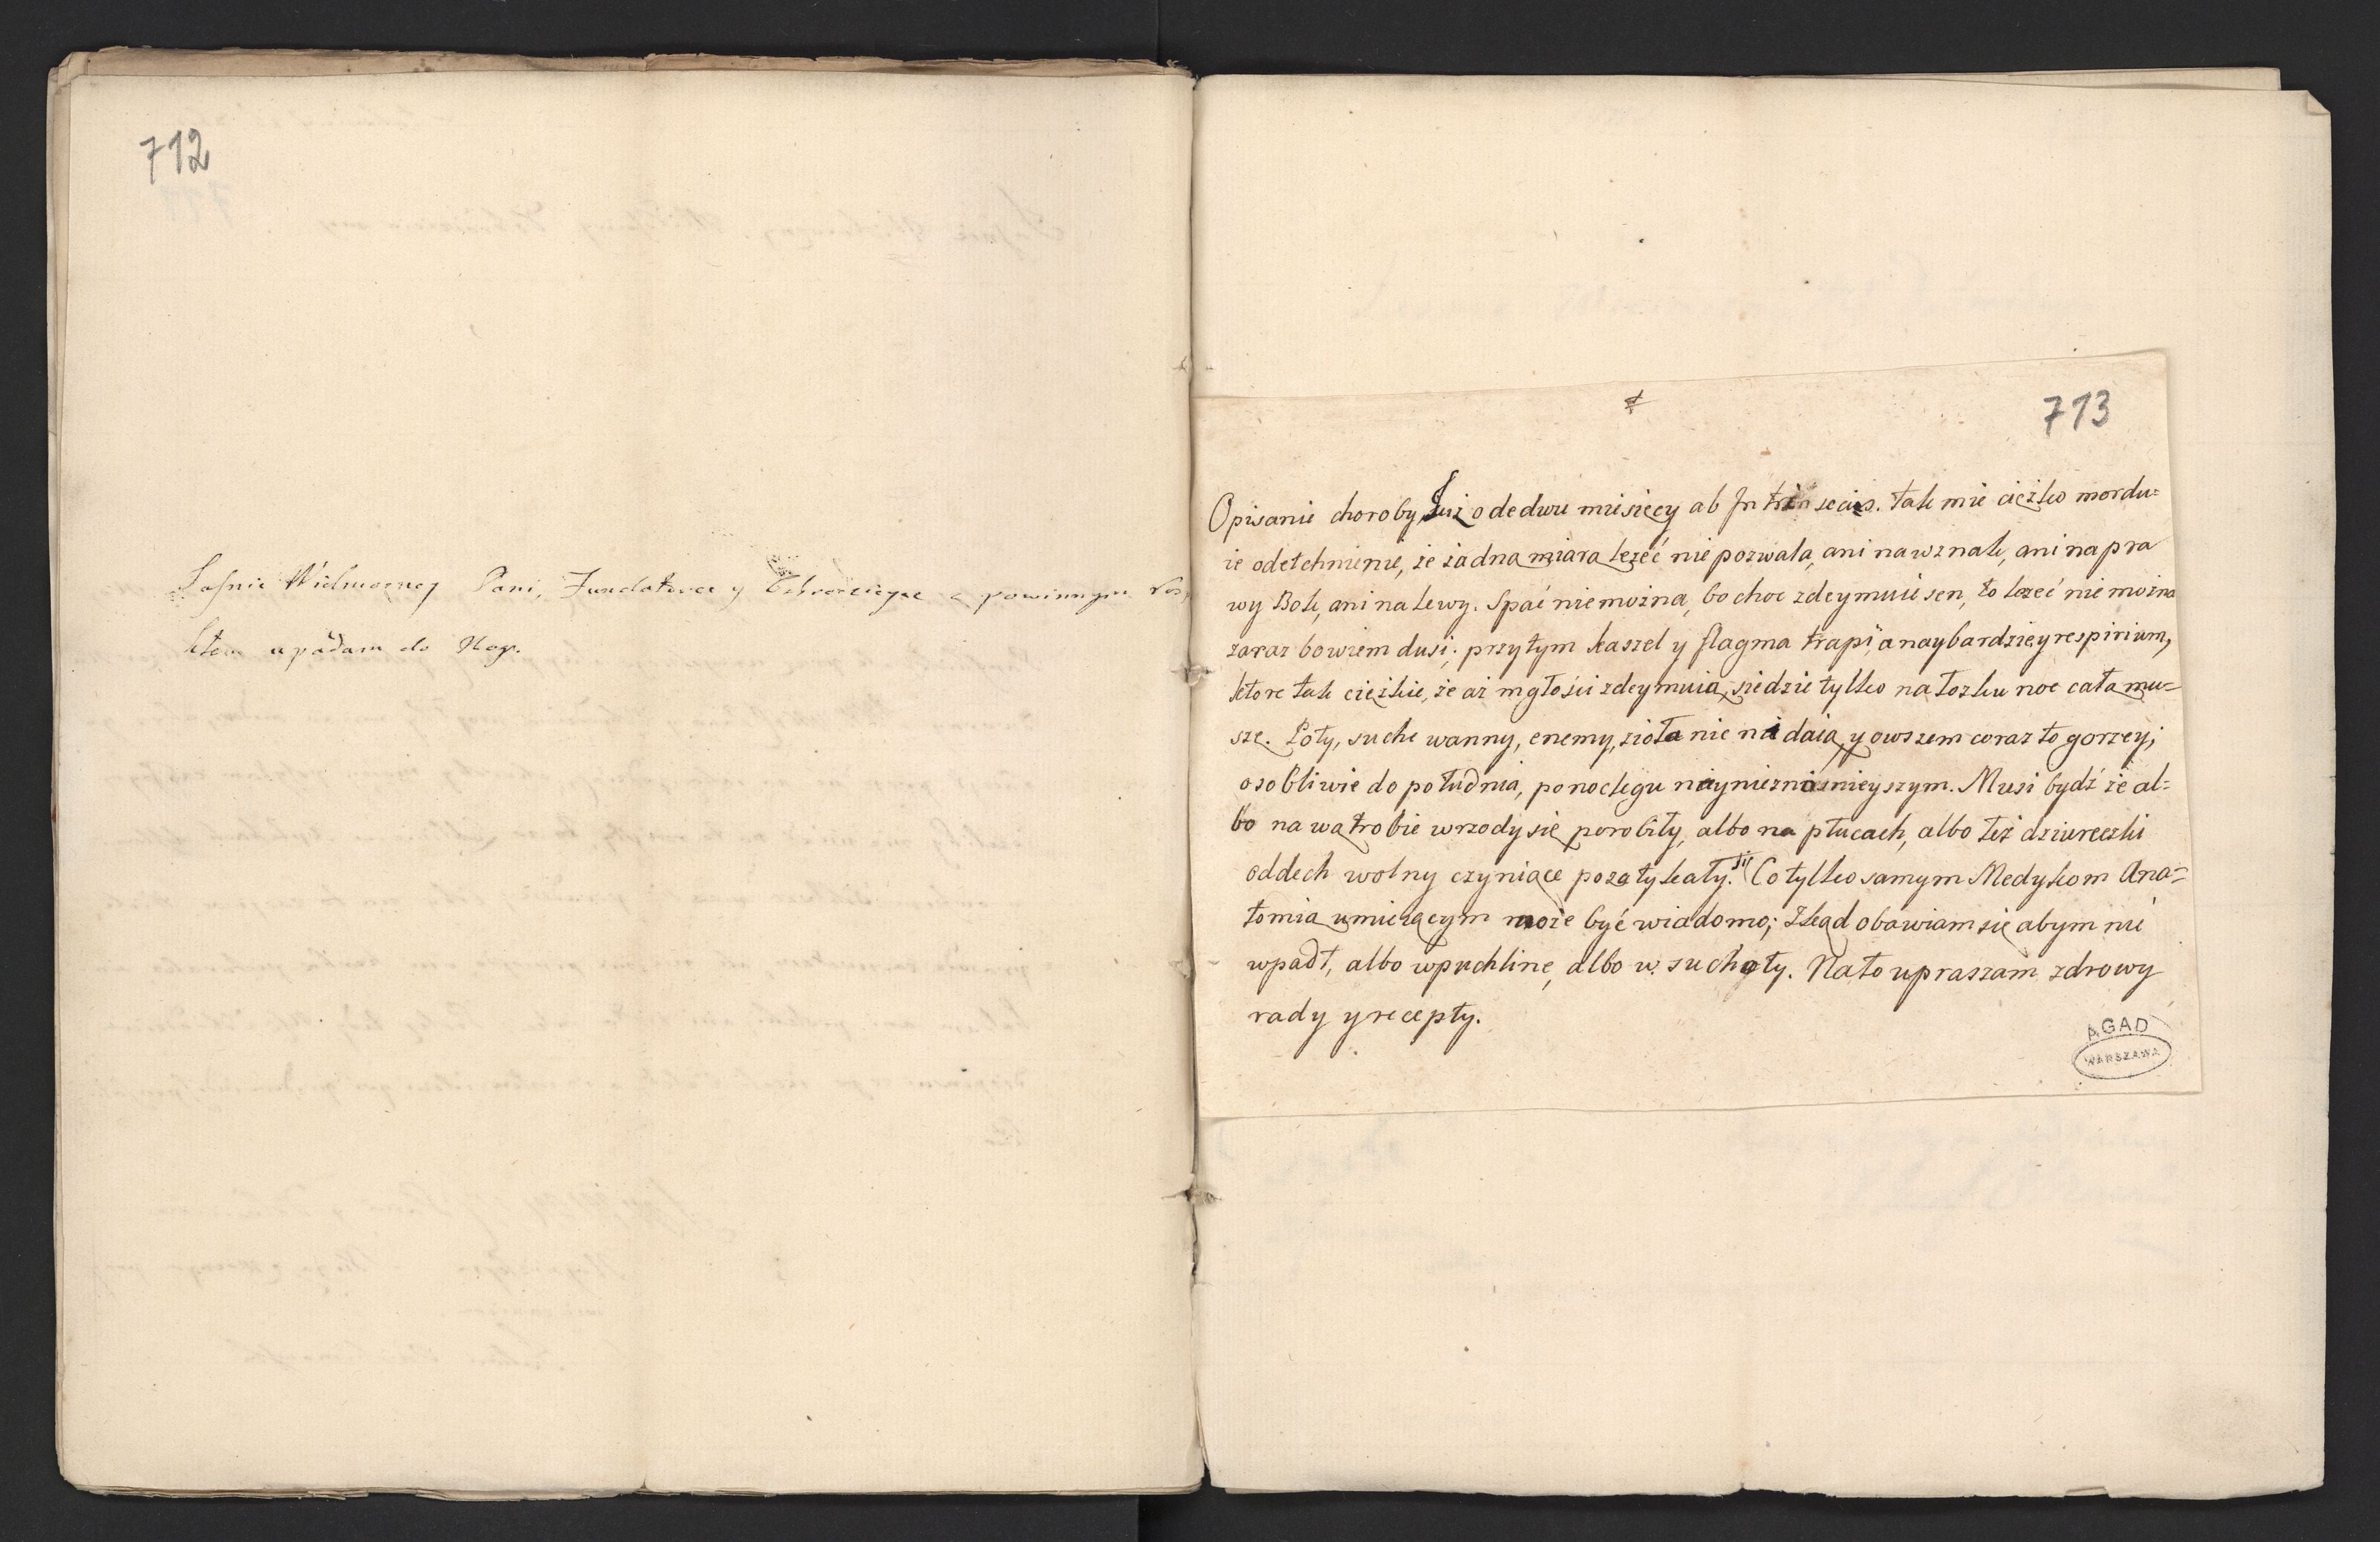 712
Jasnie Wielmozney Pani, Fundatorce y Dobrodziyce z powinnym Res,
ktem upadam do Nog.
713
Opisanie choroby, Już odedwu miesięcy ab Intrinsecis. tak mie ciężko mordu=
ie odetchnienie, że żadną miarą leżeć nie pozwala, ani na wznak, ani na pra
wy Bok, ani na lewy. Spać nie można, bo choc zdeymuie sen, to leżeć nie można
zaraz bowiem dusi; przytym kaszel y flagma trapi, a naybardziey respirium,
ktore tak cieżkie, że aż mgłości zdeymuią, siedzie tylko na łozku noc całą mu=
szę. Poty, suche wanny, enemy, zioła nic nie daią, y owszem coraz to gorzey,
osobliwie do południa, po noclegu nayniezno­śnieyszym. Musi bydź że al=
bo na wątrobie wrzody się porobiły, albo na płucach, albo też dziureczki
oddech wolny czyniące pozatykały się. Co tylko samym Medykom Ana=
tomią umieiącym może być wiadomo; Zkąd obawiam się abym nie
wpadł, albo w puchlinę, albo w suchoty. Na to upraszam zdrowy
rady y recepty.
AGAD
WARSZAWA